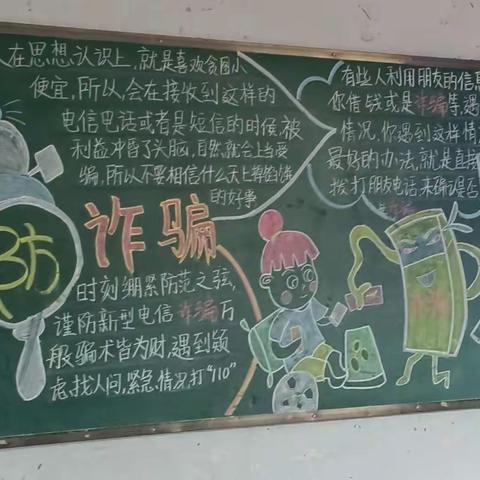 人在思想认识上,就是喜欢贪图小
便宜,所以,会在接收到这样的
电信电话或者是短信的时候,被
利益冲昏了头脑,自然就会上当受
骗,所以不要相信什么天上掉馅饼
的好事
防
诈骗
时刻绷紧防范之弦,
谨防新型电信诈骗万
般骗术皆为财,遇到疑
虑找人问,紧急情况打"110"
有些人利用朋友的信息
你借钱或是诈骗等,遇
情况,你遇到这样情
最好的办法,就是直接
拨打朋友电话,来确认是否